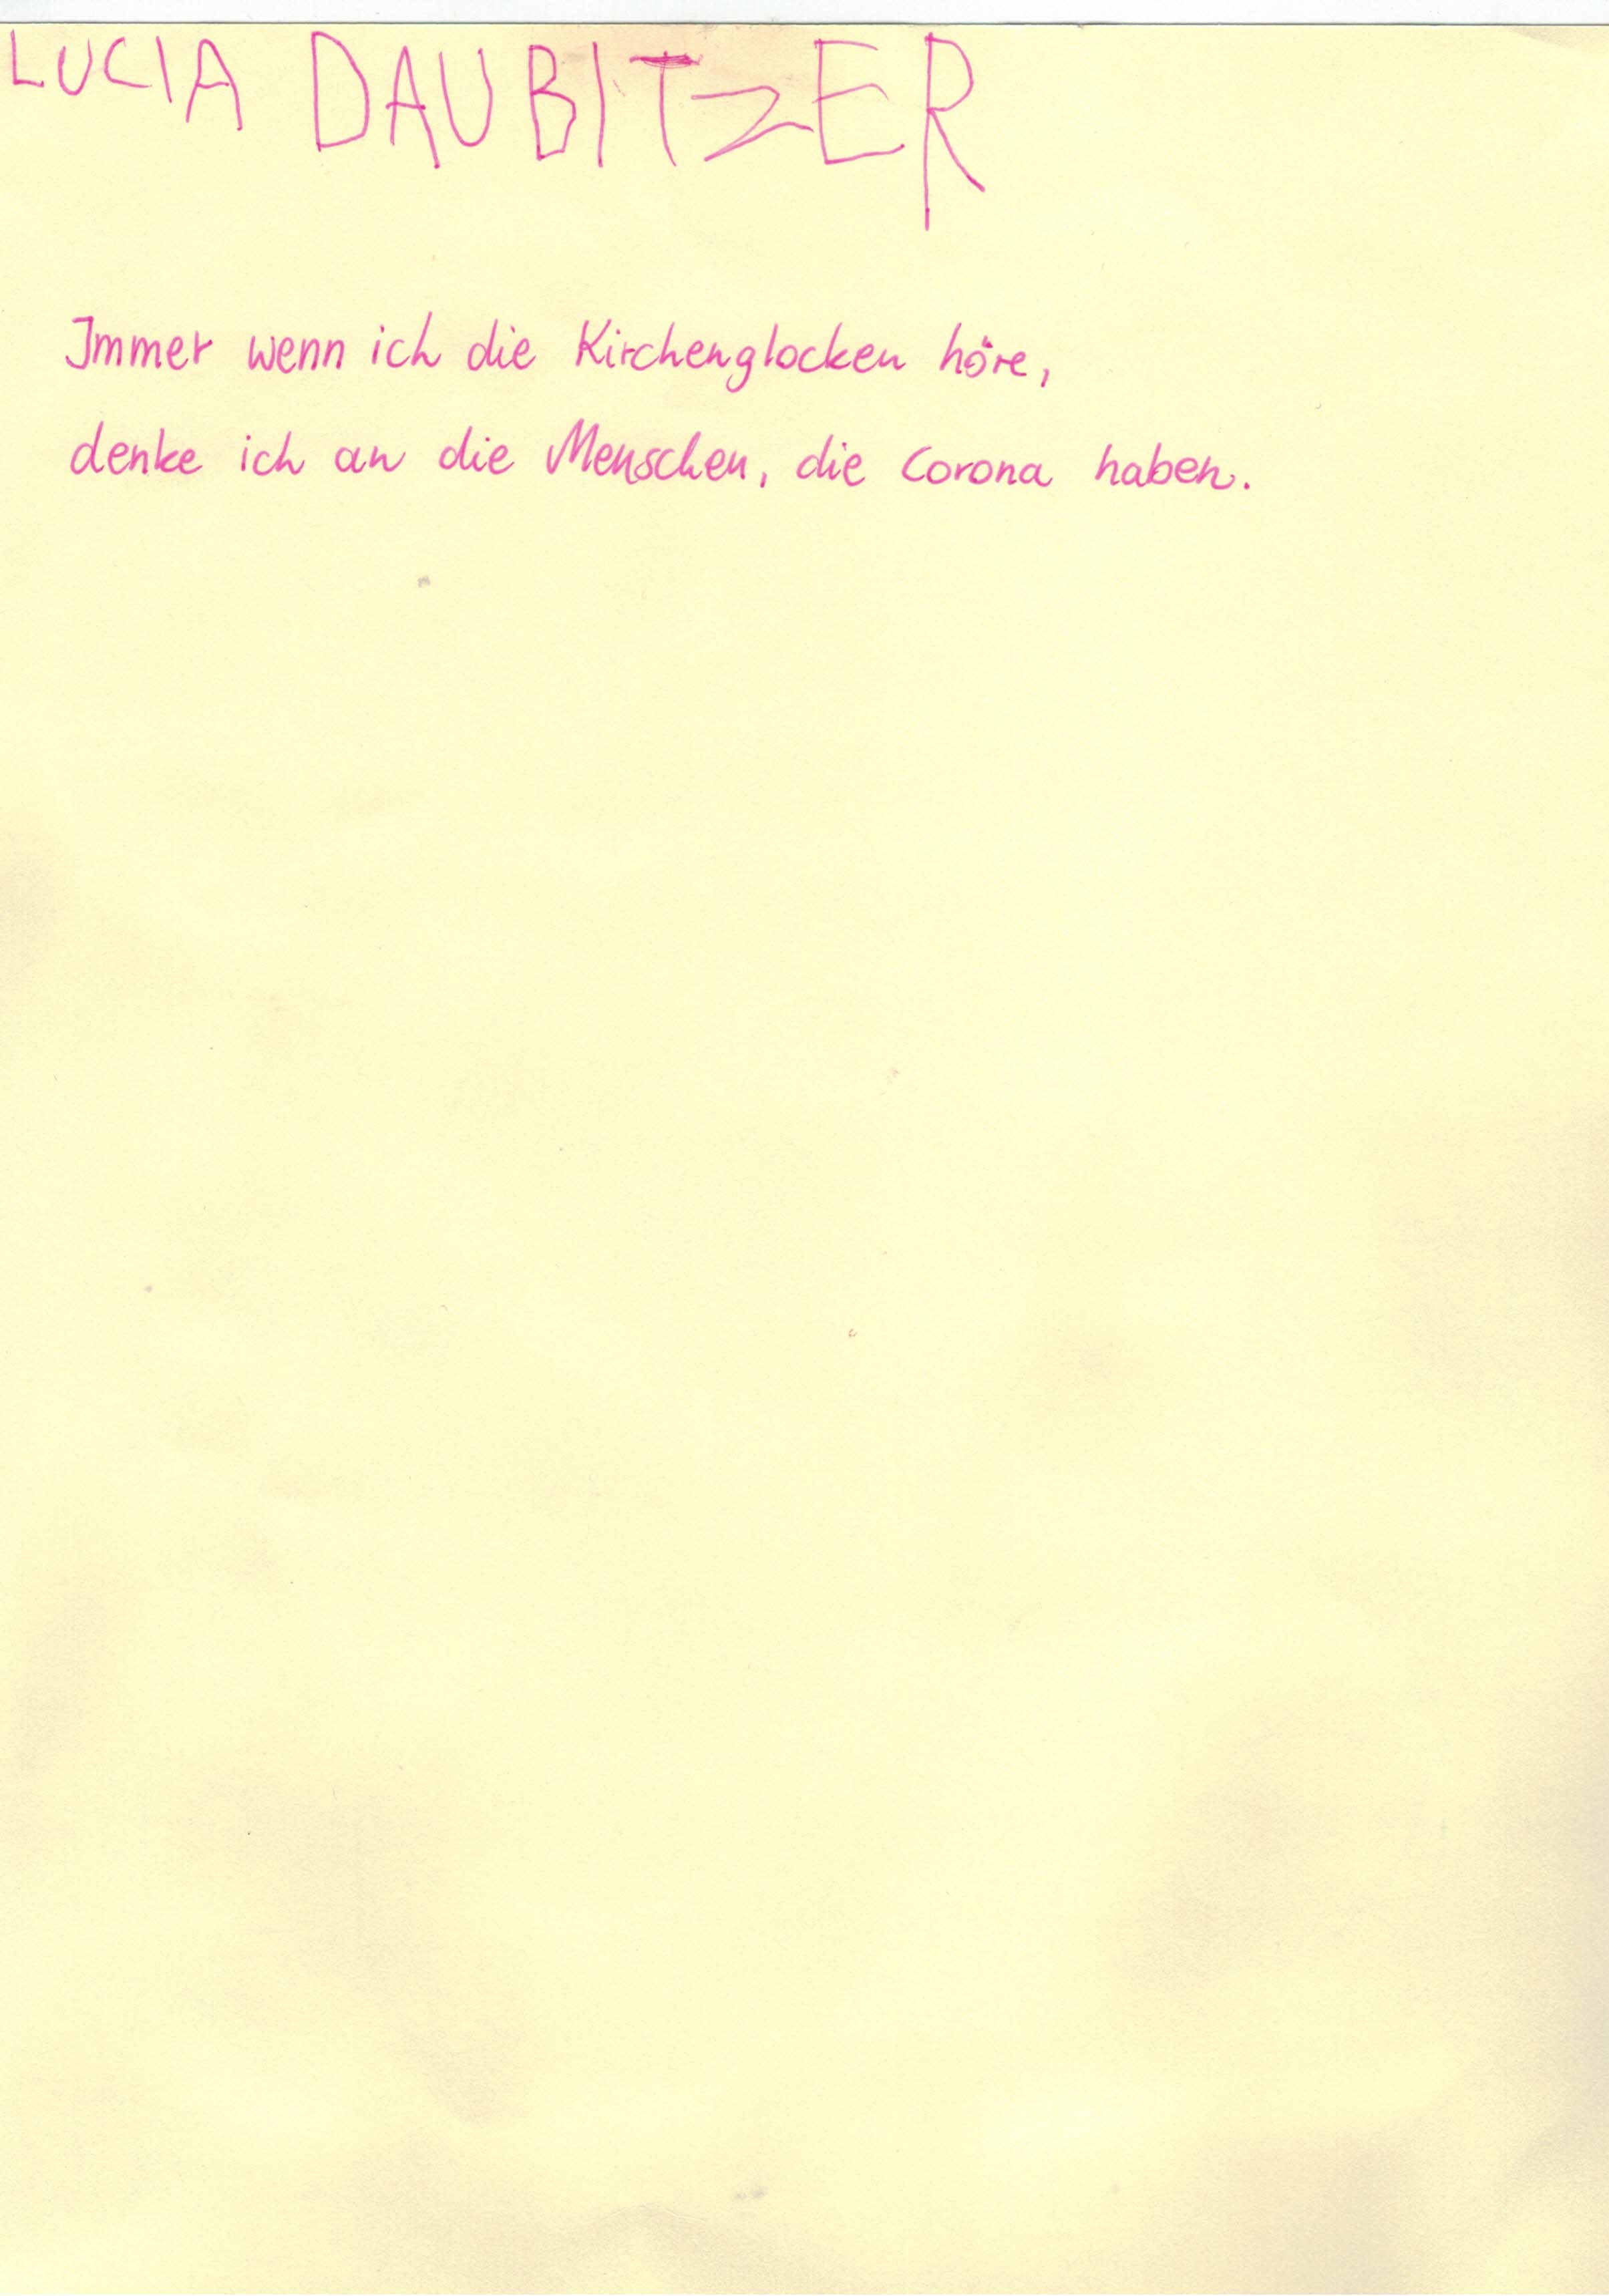 LUCIA DAUBITZER
Immer wenn ich die Kirchenglocken höre,
denke ich an die Menschen, die Corona haben.